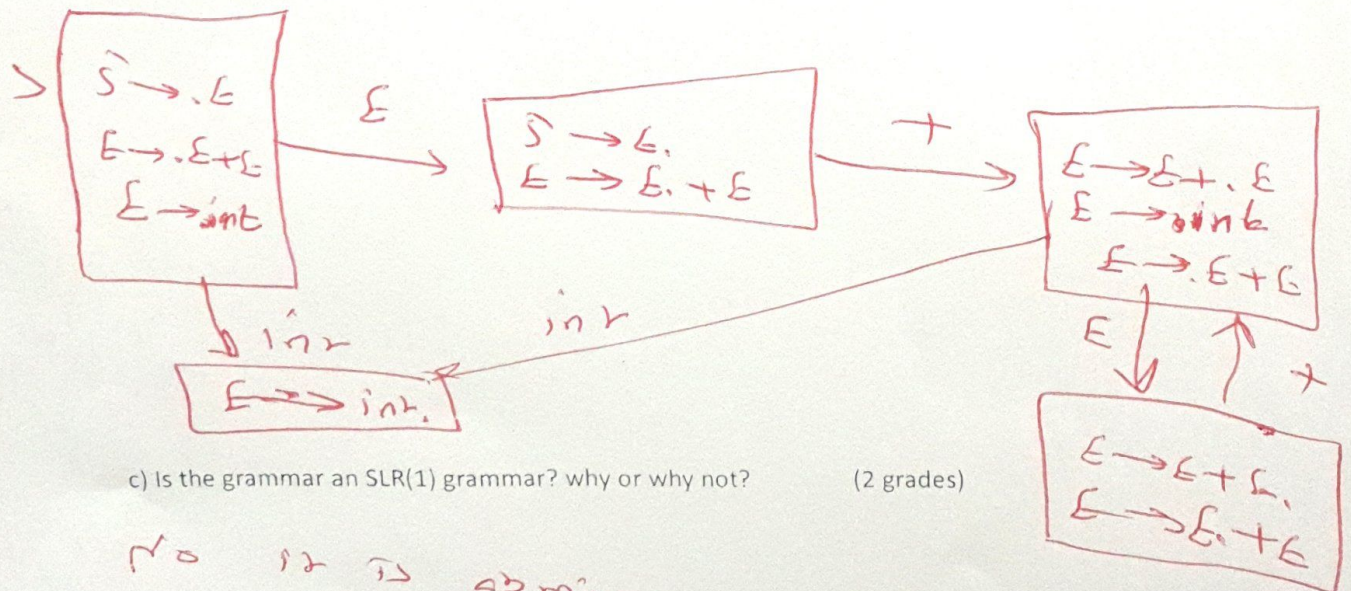 S → .E
E → .E+E
E → .int
E
S → E.
E → E. + E
+
E → E+. E
E → .int
E → .E+E
int
int
E → int.
E
+
E → E+E.
E → E. +E
c) Is the grammar an SLR(1) grammar? why or why not? (2 grades)
No it is